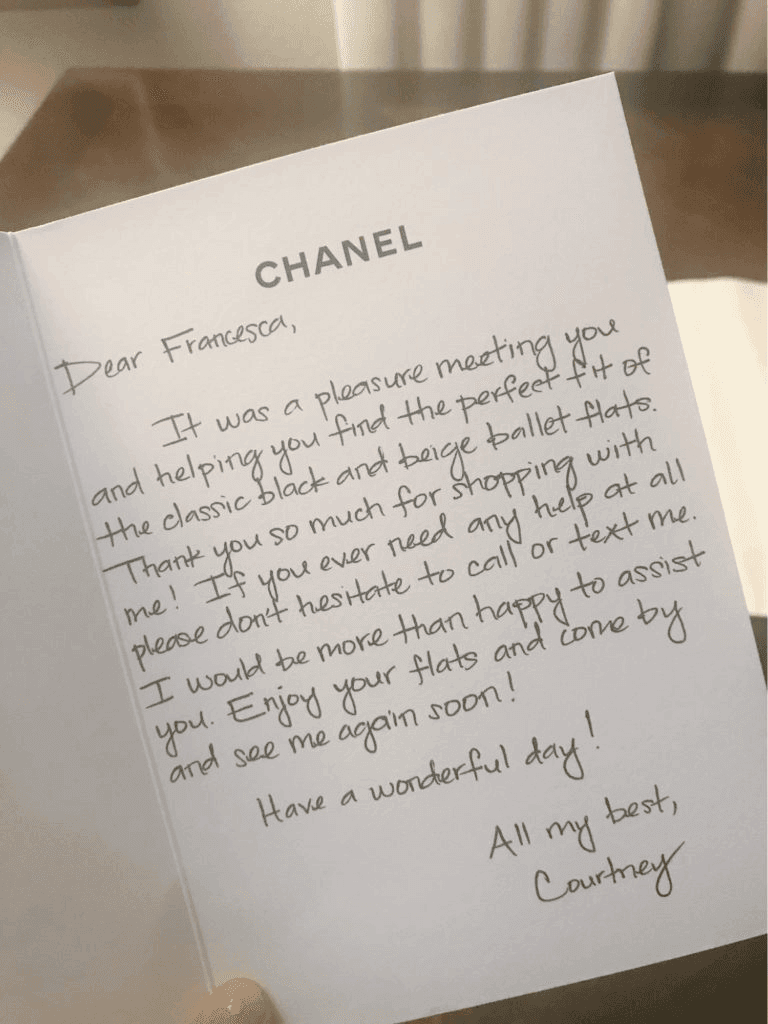 CHANEL
Dear Francesca,
It was a pleasure meeting you
and helping you find the perfect fit of
the classic black and beige ballet flats.
Thank you so much for shopping with
me! If you ever need any help at all
please don't hesitate to call or text me.
I would be more than happy to assist
you. Enjoy your flats and come by
and see me again soon!
Have a wonderful day!
All my best,
Courtney